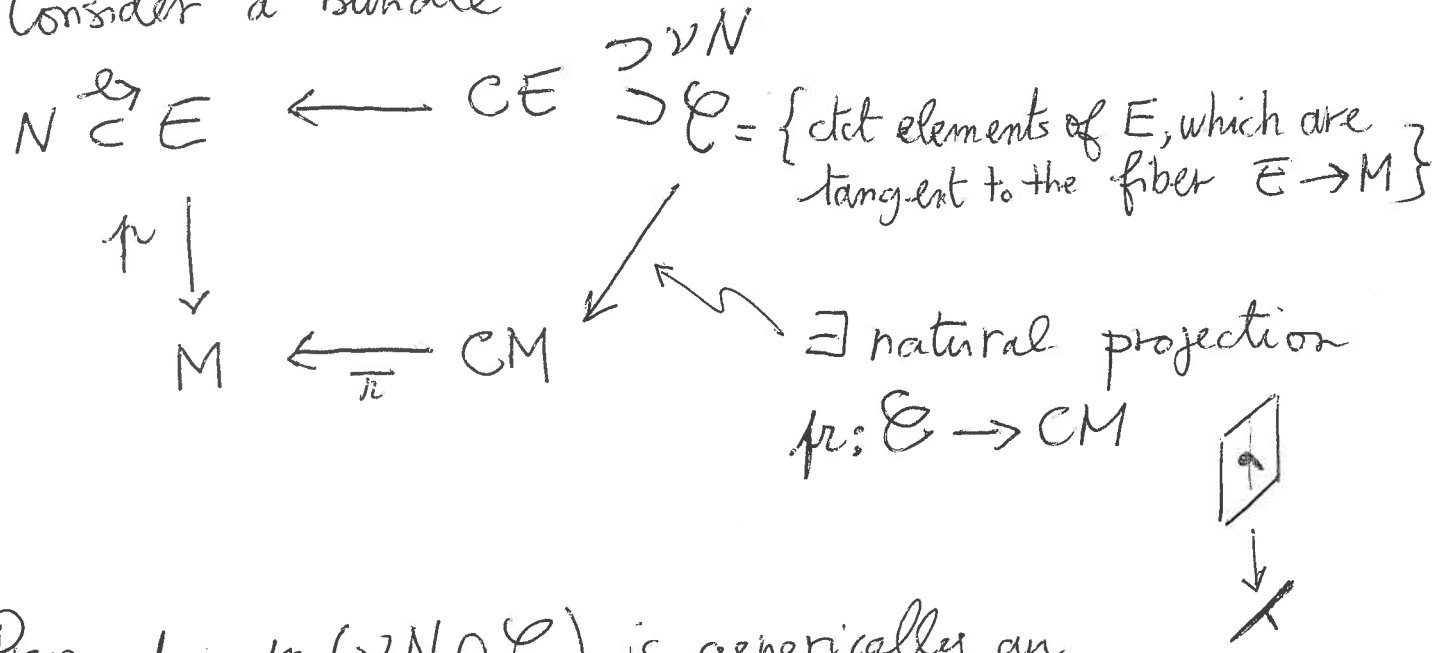 Consider a bundle
N ⊂ E ← CE ⊃ νN
⊃ 𝒞 = { ctct elements of E, which are
tangent to the fiber E → M }
p
M ← CM
π
∃ natural projection
pr: 𝒞 → CM
(νN ∩ 𝒞) is generically an